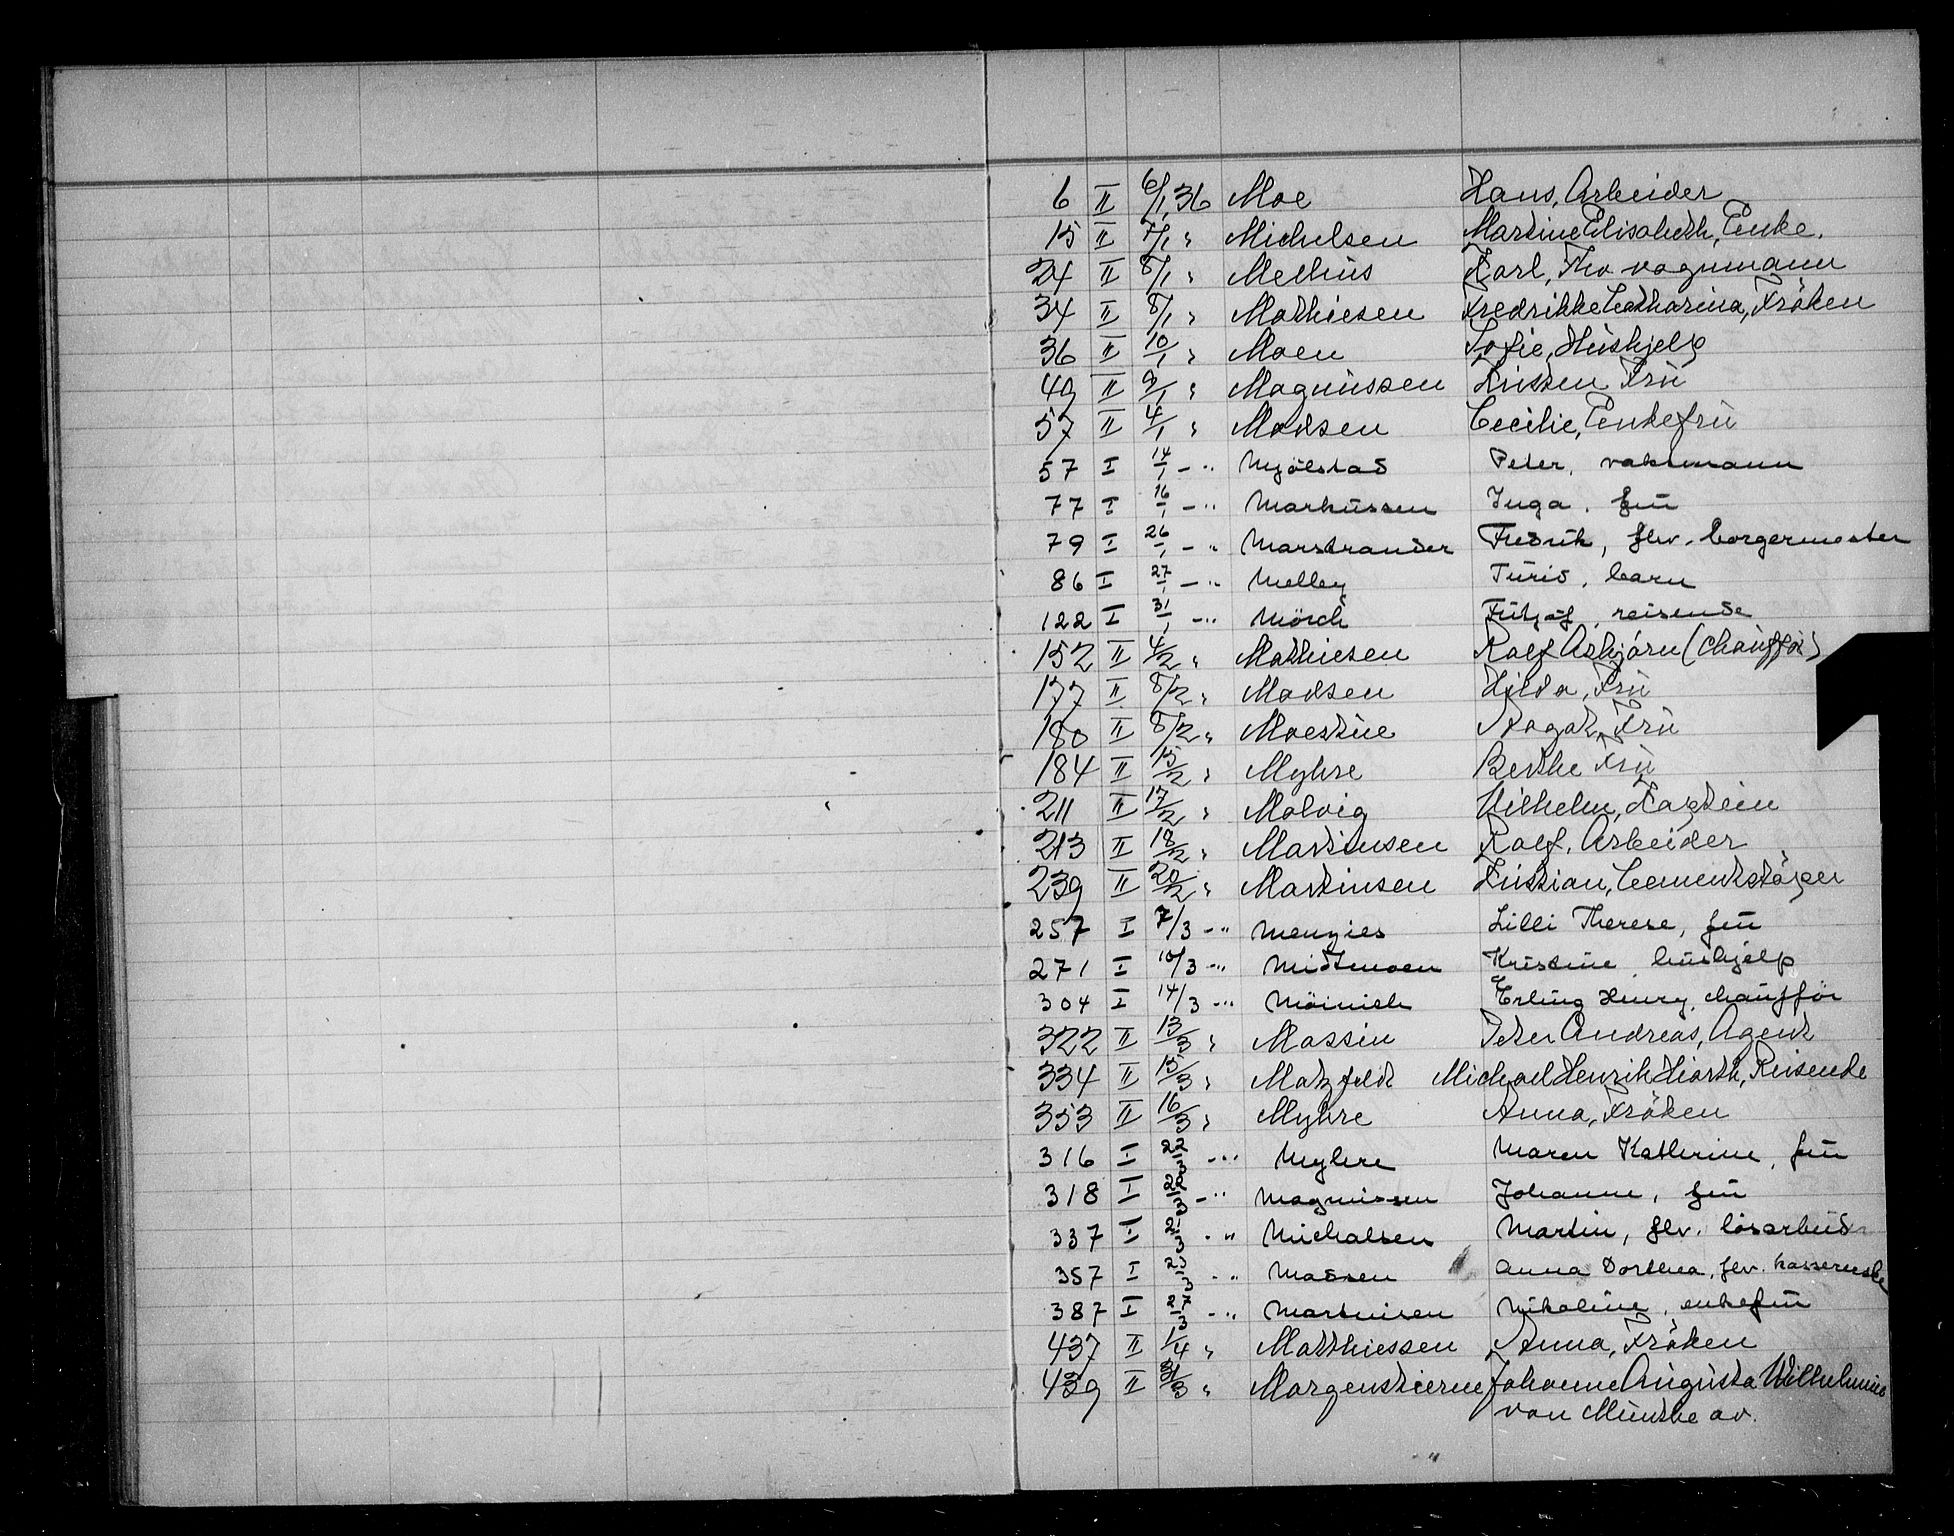 6 II 6/1 36 Moe Hans, Arbeider
15 II 7/1 " Michelsen Martine Elisabeth, Enke.
24 II 8/1 " Melhus Karl, vognmann
34 II 8/1 " Mathiesen Fredrikke Catharina, Fröken
36 II 10/1 " Moen Sofie, Hushjelp
49 II 9/1 " Magnussen Kristen Fru
57 II 4/1 " Madsen Cecilie, Enkefru
57 I 14/1 - " Mjölstad Peter, vaktmann
77 I 16/1 - " Markussen Inga, fru
79 I 26/1 - " Marstrander Fredrik, fhv. borgermester
86 I 27/1 - " Melley Turid, barn
122 I 31/1 - " Mörch Fritjof, reisende
152 II 4/2 " Mathiesen Rolf Asbjörn (Chaufför)
177 II 8/2 " Madsen Hilda, Fru
180 II 8/2 " Moestue Aagot, Fru
184 II 15/2 " Myhre Berthe Fru
211 II 17/2 " Molvig Vilhelm, Kaptein
213 II 18/2 " Martinsen Rolf, Arbeider
239 II 20/2 " Martinsen Kristian, Cementstöper
257 I 7/3 - " Menzies Lilli Therese, fru
271 I 10/3 - " Midtmoen Kristine, hushjelp
304 I 14/3 - " Möinich Erling Henry, chaufför
322 II 13/3 " Massin Peter Andreas, Agent
334 II 15/3 " Matzfeldt Michael Henrik Hiorth, Reisende
353 II 16/3 " Myhre Anna, Fröken
316 I 22/3 - " Myhre Maren Kathrine, fru
318 I /3 - " Magnussen Johanne, fru
337 I /3 - " Michalsen Martin, fhv. lösarbeid
357 I /3 - " Madsen Anna Dorthea, fhv. kassererske
387 I /3 - " Martinsen Nikoline, enkefru
437 II 1/4 " Matthiessen Anna, Fröken
439 II 31/3 " Morgenstierne Johanne Augusta Wilhelmine
von Munthe av.